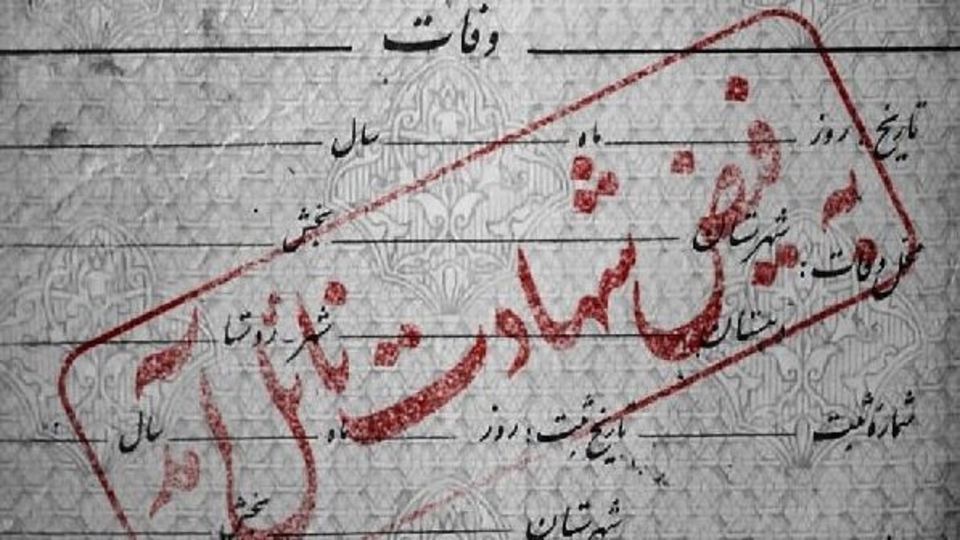 وفات
تاریخ: روز ماه سال
محل وفات: شهرستان بخش
دهستان شهر - روستا
شمارهٔ ثبت تاریخ ثبت: روز ماه سال
شهرستان بخش
به فیض شهادت نائل آمد